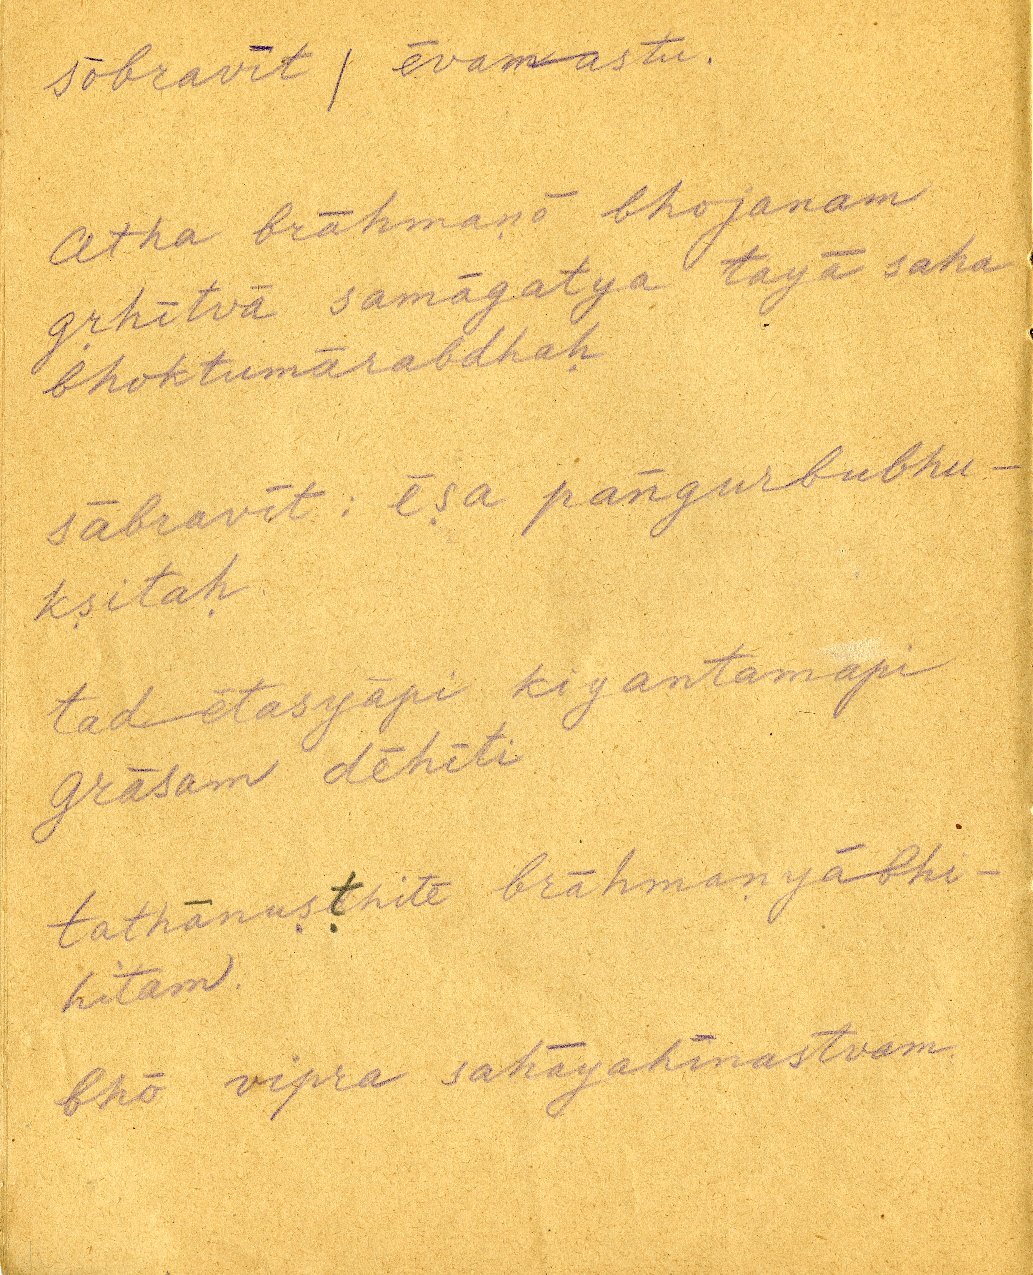 sōbravīt / ēvam-astu.
Atha brāhmaṇō bhojanam
gṛhītvā samāgatya tayā saha
bhoktumārabdhaḥ
sābravīt : ēṣa pāṅgurbubhu-
kṣitaḥ.
tad-ētasyāpi kiyantamapi
grāsam dēhīti
tathānuṣṭhitē brāhmaṇyābhi-
hitam.
bhō vipra sahāyahīnastvam